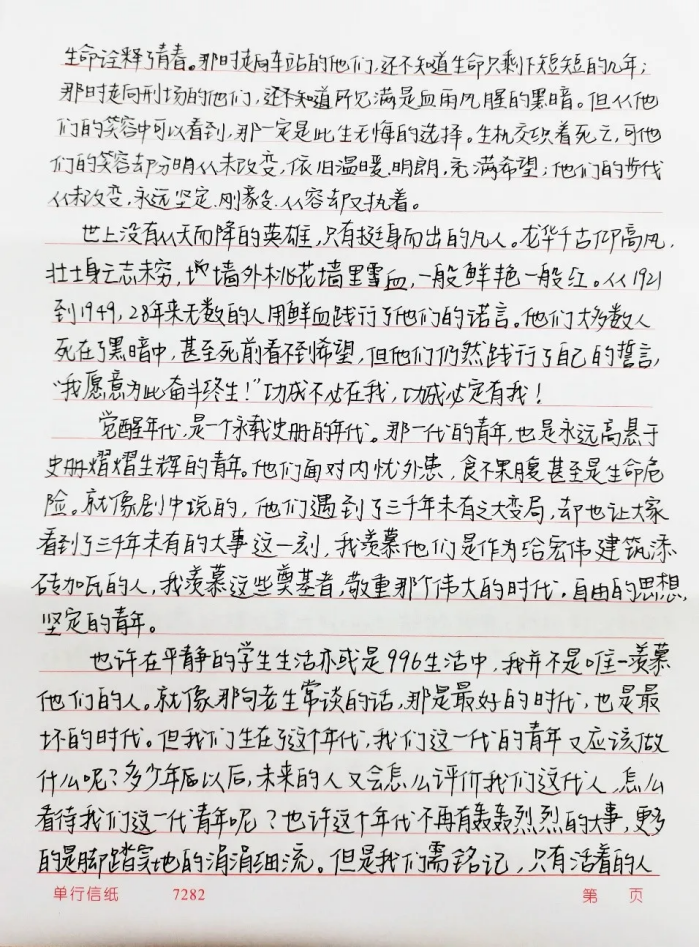 生命诠释了青春。那时走向车站的他们,还不知道生命只剩下短短的几年;
那时走向刑场的他们,还不知道所见满是血雨风腥的黑暗。但从他
们的笑容中可以看到,那一定是此生无悔的选择。生机交织着死亡,可他
们的笑容却分明从未改变,依旧温暖.明朗,充满希望;他们的步伐
从未改变,永远坚定.刚毅.从容却又执着。
世上没有从天而降的英雄,只有挺身而出的凡人。龙华千古仰高风,
壮士身亡志未穷,墙外桃花墙里雪血,一般鲜艳一般红。从1921
到1949,28年来无数的人用鲜血践行了他们的诺言。他们大多数人
死在了黑暗中,甚至死前看不到希望,但他们仍然践行了自己的誓言,
“我愿意为此奋斗终生!”功成不必在我,功成必定有我!
觉醒年代,是一个永载史册的年代。那一代的青年,也是永远高悬于
史册熠熠生辉的青年。他们面对内忧外患,食不果腹甚至是生命危
险。就像剧中说的,他们遇到了三千年未有之大变局,却也让大家
看到了三千年未有的大事这一刻,我羡慕他们是作为给宏伟建筑添
砖加瓦的人,我羡慕这些奠基者,敬重那个伟大的时代.自由的思想,
坚定的青年。
也许在平静的学生生活亦或是996生活中,我并不是唯一羡慕
他们的人。就像那句老生常谈的话,那是最好的时代,也是最
坏的时代。但我们生在了这个年代,我们这一代的青年又应该做
什么呢?多少年后以后,未来的人又会怎么评价我们这代人,怎么
看待我们这一代青年呢?也许这个年代不再有轰轰烈烈的大事,更多
的是脚踏实地的涓涓细流。但是我们需铭记,只有活着的人
单行信纸 7282 第 页